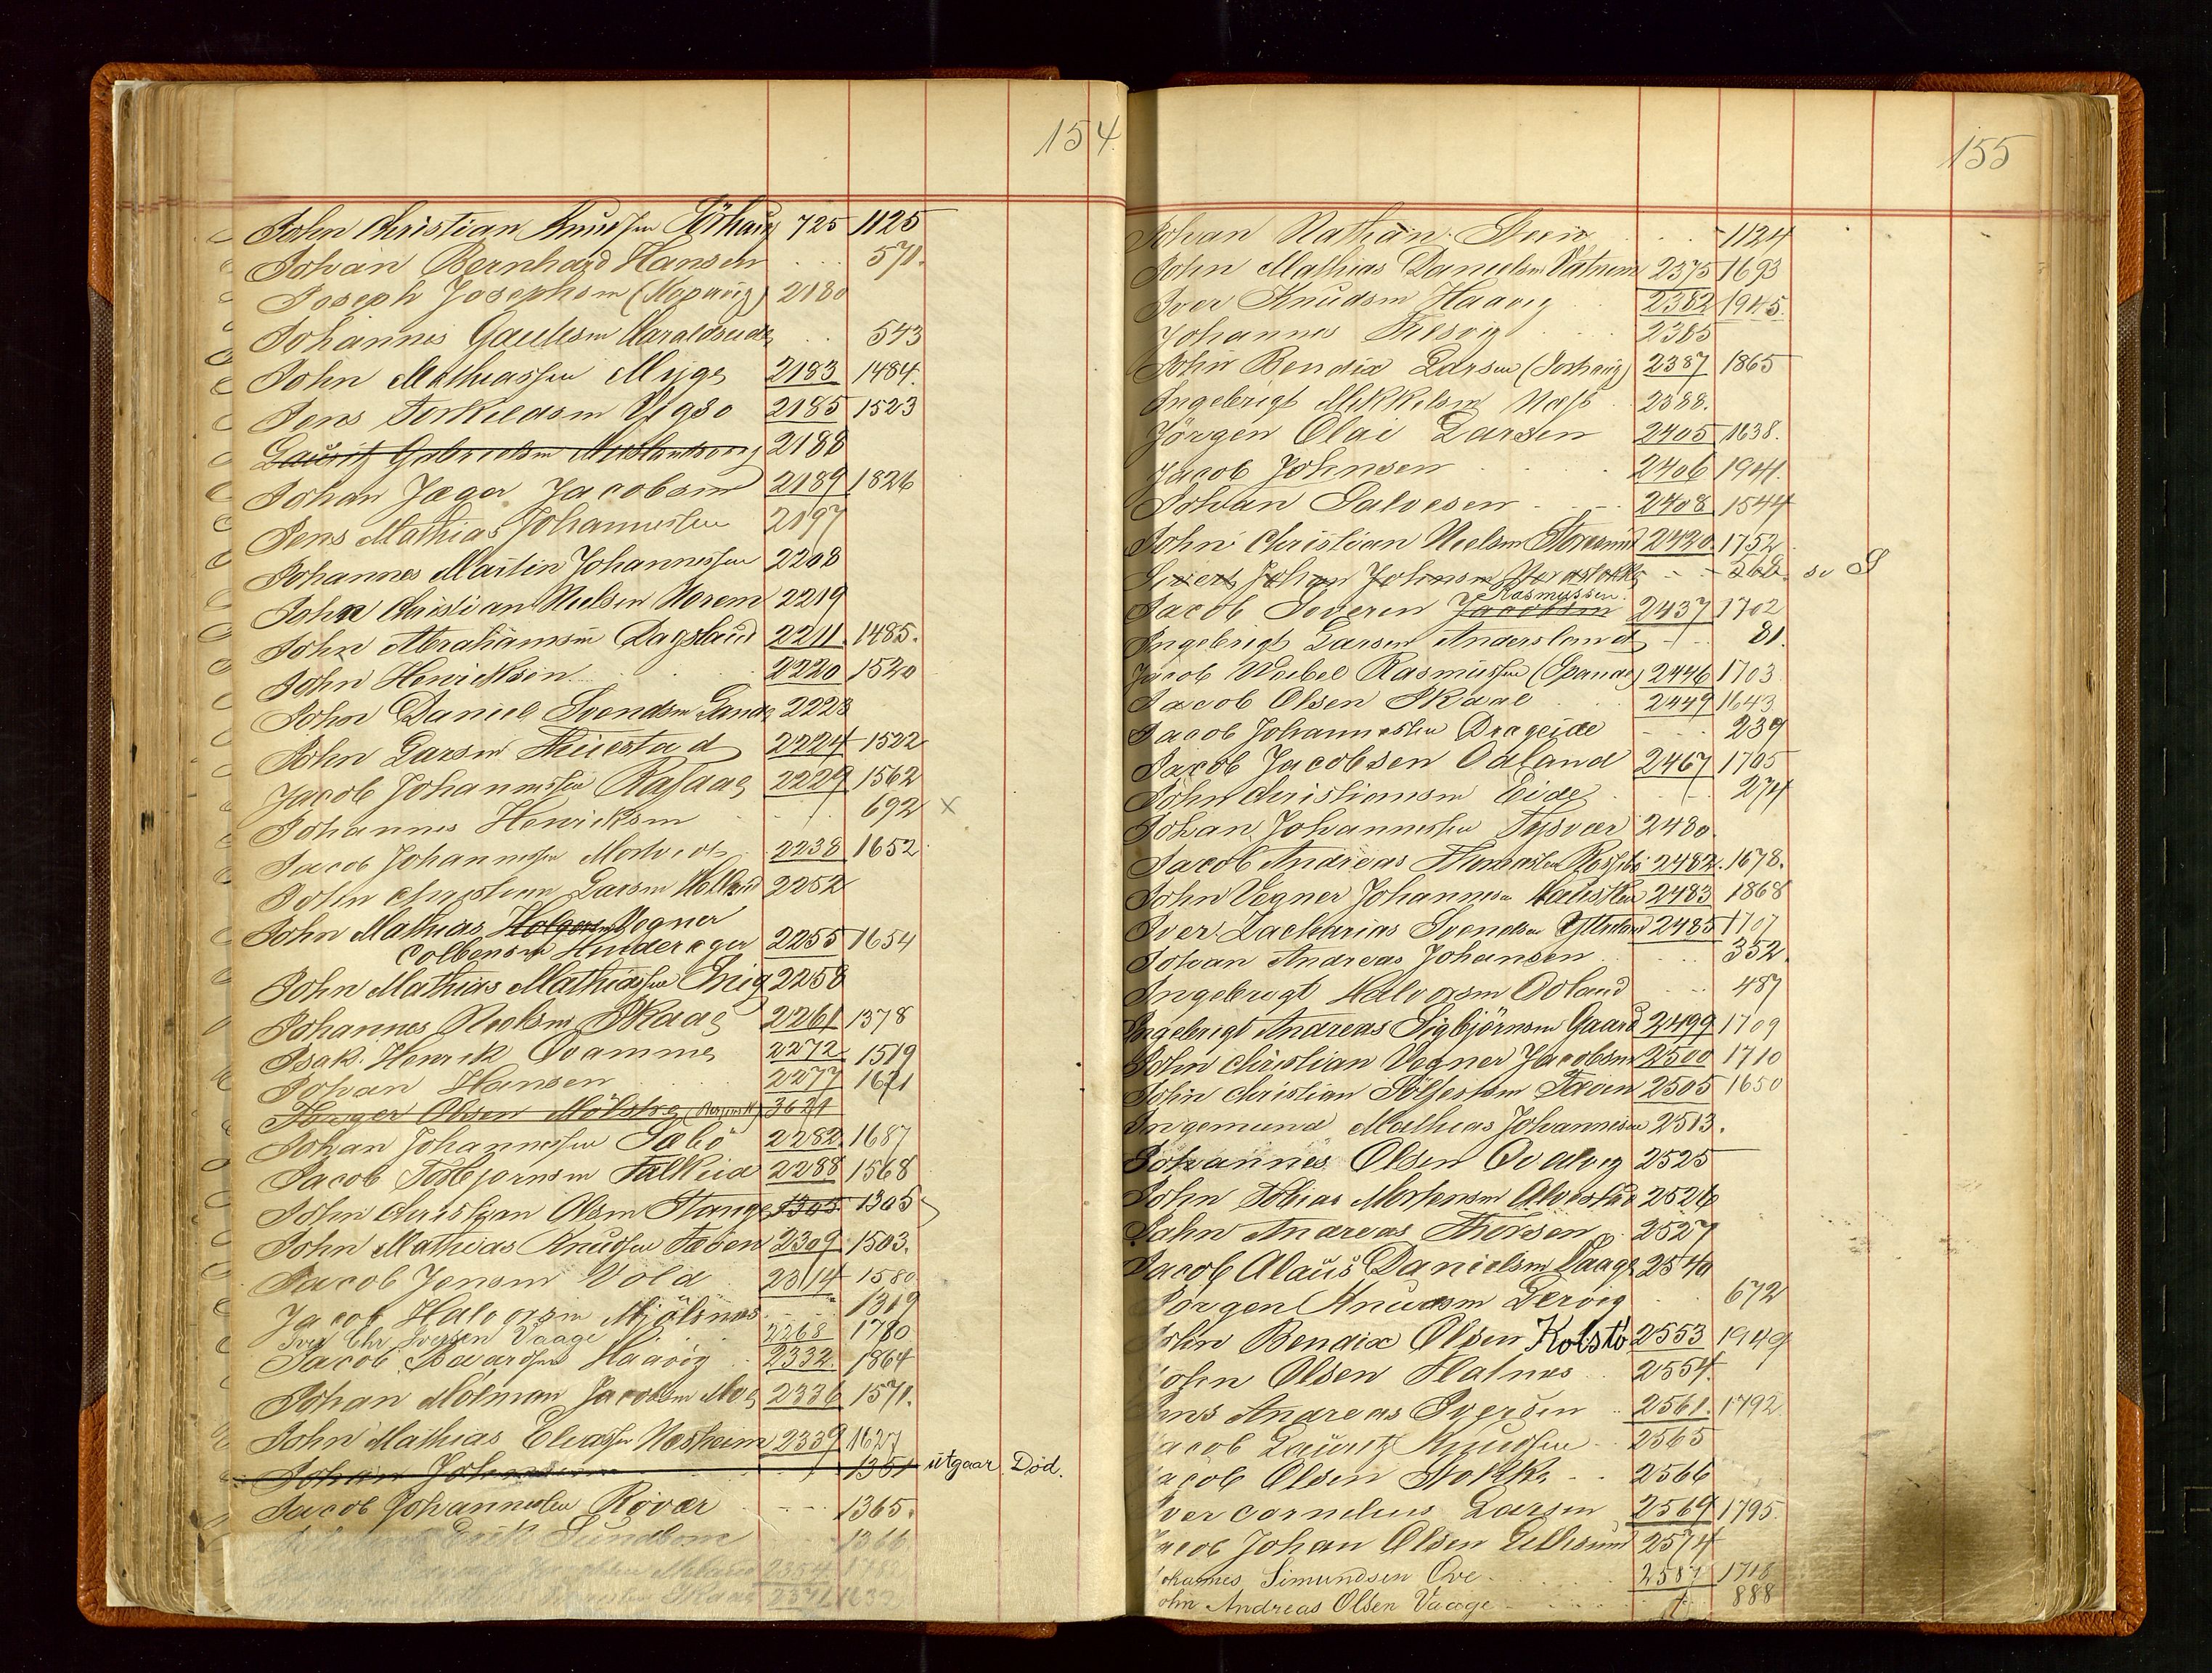 154
John Christian Knudsen Förhaug 725 1125
Johan Bernhard Hansen 571.
Joseph Josephsen (Kopavig) 2180
Johannes Gautesen Haraldseide 543
John Mathiassen Myge 2183 1484.
Jens Torkildsen Vigso 2185 1523
Lauritz Gabrielsen 2188
Johan Jæger Jacobsen 2189 1826
Jens Mathias Johannessen 2197
Johannes Martin Johannessen 2208
John Christian Nielsen Norem 2219
John Abrahamsen Dagsland 2211. 1485.
John Henriksen 2220 1520
John Daniel Svendsen Sande 2223
John Larsen Tuestad 2224 1522
Jacob Johannessen 2229 1562
Johannes Henriksen 692 x
Jacob Johannessen 2238 1652
John Christian Larsen 2252
John Mathias Holgersen Vogner
Colbensen 2255 1654
John Mathias Mathiassen 2258
Johannes Nielsen Skaae 2261 1378
Isak Henrik Qvamme 2272 1519
Johan Hansen 2277 1671
Olsen 3621
Johan Johannessen Sæbö 2282 1687
Jacob Torbjörnsen Falkeid 2288 1568
John Christian Olsen Stange 1305 1305
John Mathias Knudsen Tveen 2309 1503.
Jacob Jensen Vold 2314 1580
Jacob Halvorsen Mjölsnæs 1319
Iver Chr. Iversen Vaage 2268 1780
Jacob Baardsen Haavig 2332. 1864
Johan Molman Jacobsen Moe 2336 1571.
John Mathias Eliassen Nesheim 2339 1627
Johan 1351 utgaar Död.
Jacob Johannessen Rövær 1365.
Erik Sundbom 1366
2354 1782
Skaae 2371 1632
155
Johan Nathan Steen 1124
John Mathias Danielsen Vatnem 2375 1693
Iver Knudsen Haavig 2382 1945.
Johannes Tresvig 2385
John Bendix Larsen (Torhaug) 2387 1865
Ingebrigt Mikkelsen Næss 2388.
Jörgen Olai Larsen 2405 1638.
Jacob Johnsen 2406 1941.
Johan Salvesen 2408 1544
John Christian Nielsen Storesund 2420. 1752
Sivert Johan Johnsen 568. se S
Rasmussen.
Jacob Soveren Jacobsen 2437 1702
Ingebrigt Larsen Andersland 81.
Jacob Weibel Rasmussen (Spande) 2446 1703
Jacob Olsen Skaae 2449 1643
Jacob Johannessen Drageide 239
Jacob Jacobsen Odland 2467 1705
John Christiansen Eide 274
Johan Johannessen Tysvær 2480
Jacob Andreas 2482. 1678.
John Vegner Johannesen 2483 1868
Iver Zacharias Svendsen Ytreland 2485 1707
Johan Andreas Johansen 352.
Ingebrigt Halvorsen Odland 487
Ingebrigt Andreas Sigbjörnsen Gaard 2499 1709
John Christian Vegner Jacobsen 2500 1710
John Christian 2505 1650
Ingemund Mathias Johannesen 2513.
Johannes Olsen Qvalvig 2525
John Tobias Mortensen Alvestad 2526
John Andreas Thorsen 2527
Jacob Alaus Danielsen Vaage 2540
Jörgen Knudsen Lervig 672
John Bendix Olsen Kolstö 2553 1949
John Olsen Hatnes 2554.
Jens Andreas Iversen 2561. 1792
Jacob Lauritz Knudsen 2565
Jacob Olsen Stokke 2566
Iver Cornelius Larsen 2569 1795.
Jacob Johan Olsen Lillesund 2574
Simundsen Ove. 2587 1718
ohn Andreas Olsen Vaage 888